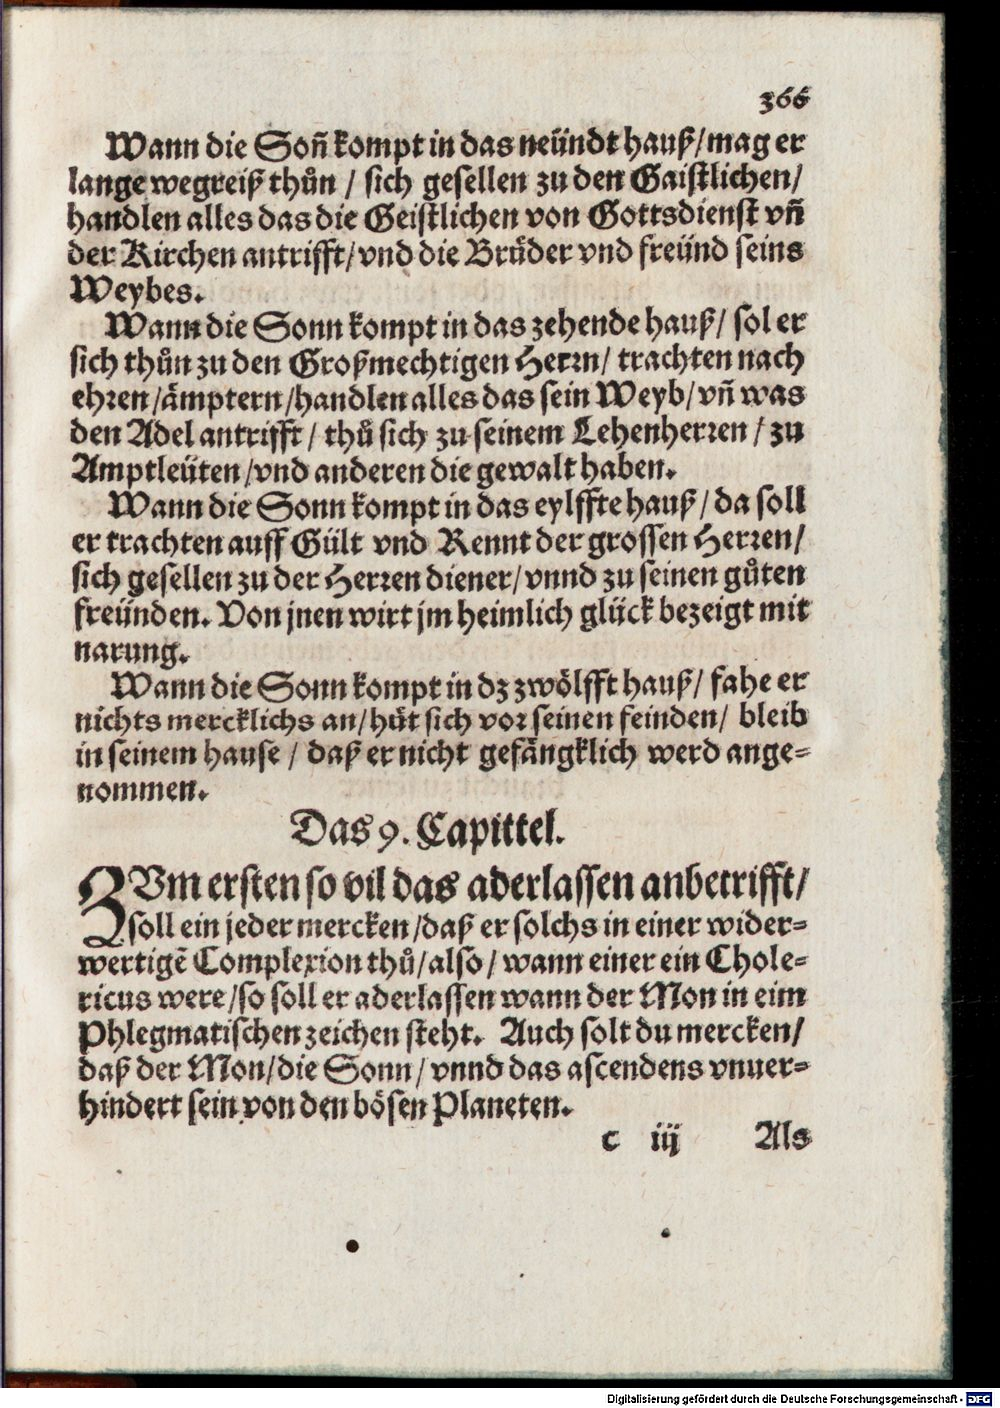 366
Wann die Son̄ kompt in das neündt hauß/mag er
lange wegreiß thůn / sich gesellen zu den Gaistlichen/
handlen alles das die Geistlichen von Gottsdienst vn̄
der Kirchen antrifft/vnd die Brüder vnd freünd seins
Weybes.
Wann die Sonn kompt in das zehende hauß/ sol er
sich thůn zu den Großmechtigen Herrn/ trachten nach
ehren/ämptern/handlen alles das sein Weyb/vn̄ was
den Adel antrifft/ thů sich zu seinem Lehenherren/ zu
Amptleüten/vnd anderen die gewalt haben.
Wann die Sonn kompt in das eylffte hauß/ da soll
er trachten auff Gült vnd Rennt der grossen Herren/
sich gesellen zu der Herren diener/vnnd zu seinen gůten
freünden. Von jnen wirt jm heimlich glück bezeigt mit
narung.
Wann die Sonn kompt in dz zwölfft hauß/ fahe er
nichts mercklichs an/hüt sich vor seinen feinden/ bleib
in seinem hause / daß er nicht gefängklich werd ange-
nommen.
Das 9. Capittel.
ZVm ersten so vil das aderlassen anbetrifft/
soll ein jeder mercken/daß er solchs in einer wider-
wertigē Complexion thů/also/ wann einer ein Chole-
ricus were/so soll er aderlassen wann der Mon in eim
Phlegmatischen zeichen steht. Auch solt du mercken/
daß der Mon/die Sonn/vnnd das ascendens vnuer-
hindert sein von den bösen Planeten.
c iij Als
Digitalisierung gefördert durch die Deutsche Forschungsgemeinschaft - DFG